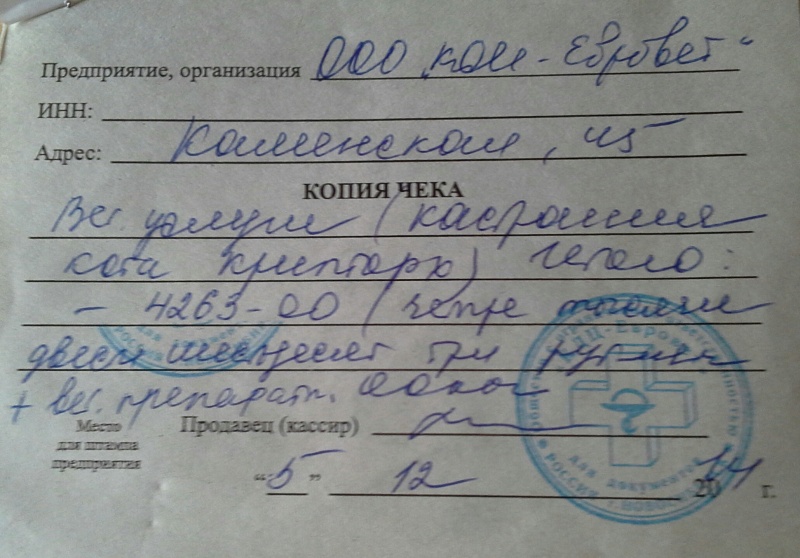 Предприятие, организация ООО „КДЦ - Евровет“
ИНН:
Адрес: Каменская, 45
КОПИЯ ЧЕКА
Вет. услуги (кастрация
кота крипторх) Итого:
- 4263-00 (четыре тысячи
двести шестьдесят три рубля
+ вет. препараты.
Место
для штампа
предприятия
Продавец (кассир)
"5" 12 2014 г.
для документов
РОССИЯ г. НОВОС